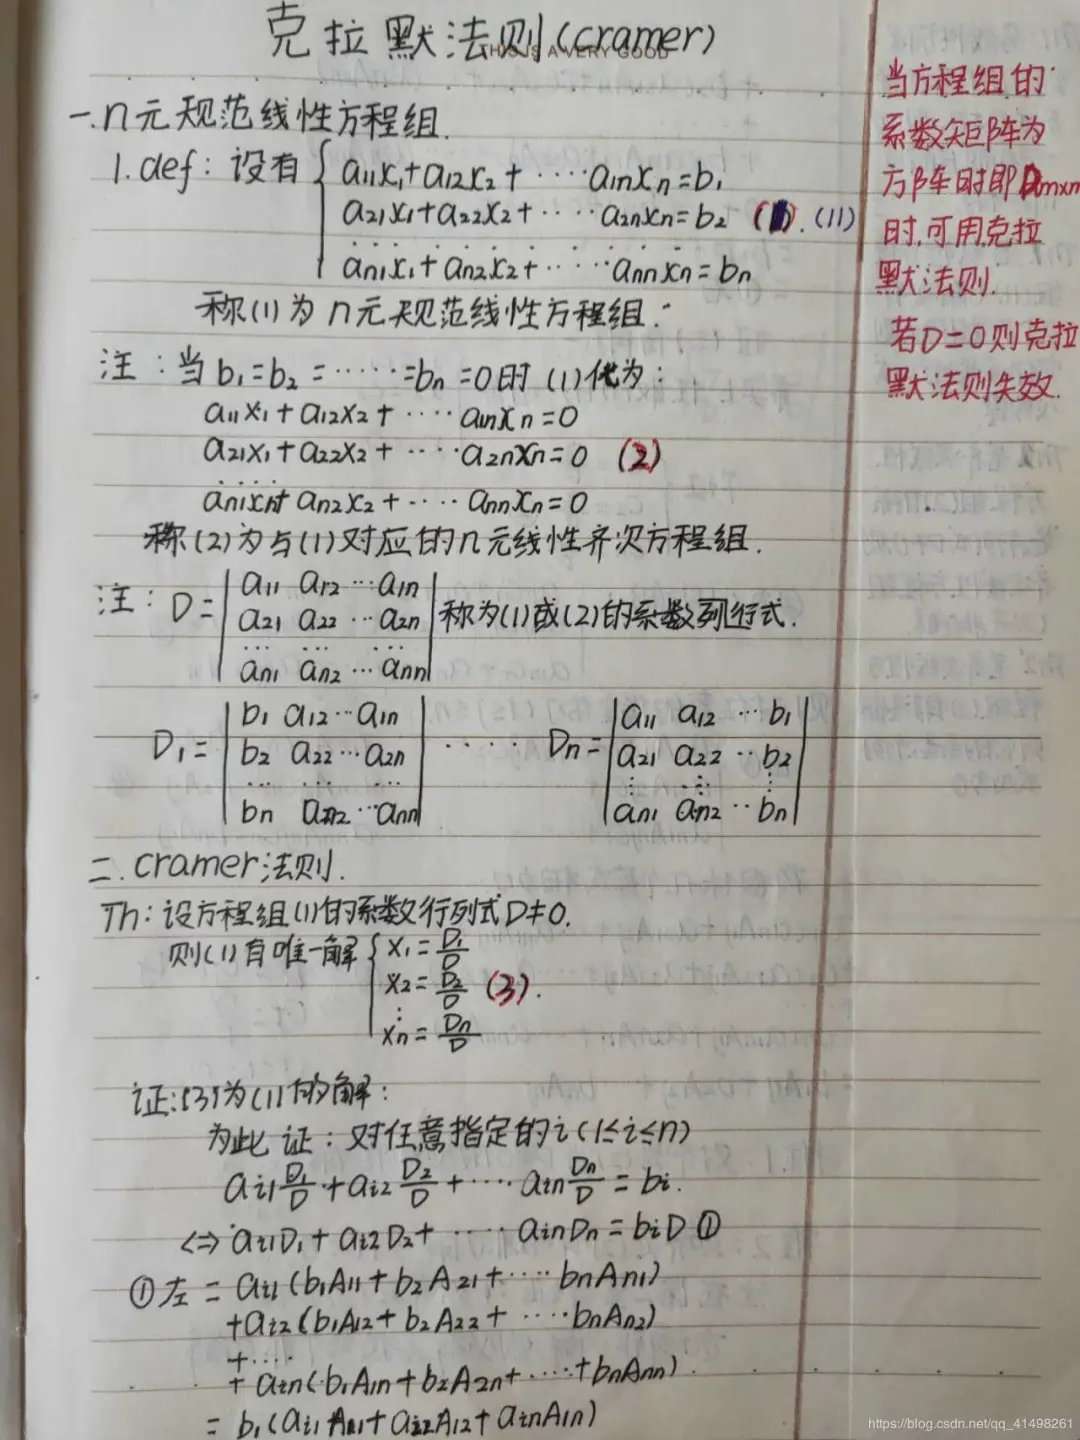 克拉默法则(cramer)
THIS IS A VERY GOOD
一.n元规范线性方程组.
1.def: 设有 { a11x1+a12x2+····a1nxn=b1
a21x1+a22x2+····a2nxn=b2 (1).(11)
········
an1x1+an2x2+·····annxn=bn
称(1)为n元规范线性方程组.
注:当b1=b2=·····=bn=0时 (1)化为:
a11x1+a12x2+····a1nxn=0
a21x1+a22x2+····a2nxn=0 (2)
·····
an1x1+an2x2+····annxn=0
称(2)为与(1)对应的n元线性齐次方程组.
注: D= | a11 a12 ···a1n |
| a21 a22 ···a2n | 称为(1)或(2)的系数列行式.
··· ··· ···
| an1 an2 ···ann |
D1= | b1 a12···a1n | ····· Dn= | a11 a12 ···b1 |
| b2 a22···a2n | | a21 a22 ··b2 |
| bn an2···ann | | an1 an2 ··bn |
二.cramer法则.
Th: 设方程组(1)的系数行列式D≠0.
则(1)有唯一解 { x1=D1/D
x2=D2/D (3).
⋮
xn=Dn/D
证:(3)为(1)的解:
为此证: 对任意指定的i(1≤i≤n)
ai1 D1/D+ai2 D2/D+····ain Dn/D=bi.
<=> ai1D1+ai2D2+·····ainDn=biD ①
①左=ai1(b1A11+b2A21+····bnAn1)
+ai2(b1A12+b2A22+····bnAn2)
+····
+ain(b1A1n+b2A2n+····+bnAnn)
=b1(ai1A11+ai2A12+ainA1n)
当方程组的
系数矩阵为
方阵时即Dm×n
时,可用克拉
默法则.
若D=0则克拉
默法则失效.
https://blog.csdn.net/qq_41498261